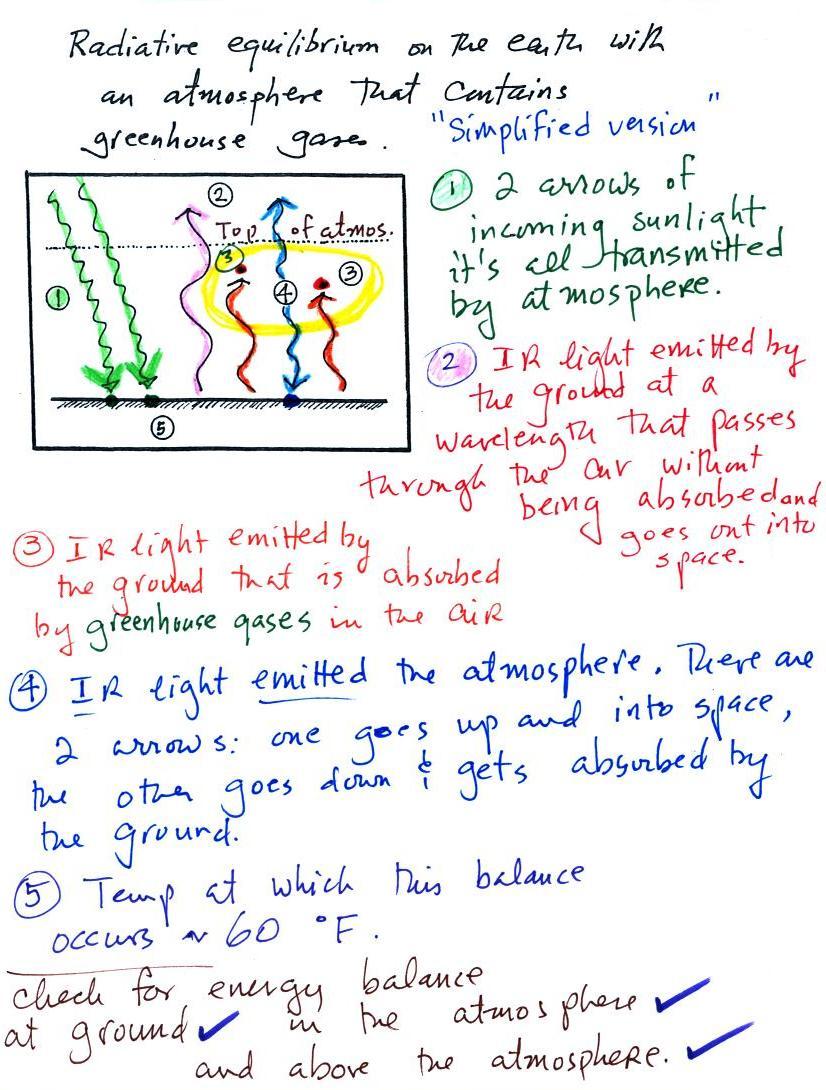 Radiative equilibrium on the earth with
an atmosphere that contains
greenhouse gases.
"Simplified version"
②
Top of atmos.
③
③
①
④
⑤
① 2 arrows of
incoming sunlight
it's all transmitted
by atmosphere.
② IR light emitted by
the ground at a
wavelength that passes
through the air without
being absorbed and
goes out into
space.
③ IR light emitted by
the ground that is absorbed
by greenhouse gases in the air
④ IR light emitted the atmosphere. There are
2 arrows: one goes up and into space,
the other goes down & gets absorbed by
the ground.
⑤ Temp at which this balance
occurs ~ 60 °F.
check for energy balance
at ground ✓ in the atmosphere ✓
and above the atmosphere. ✓